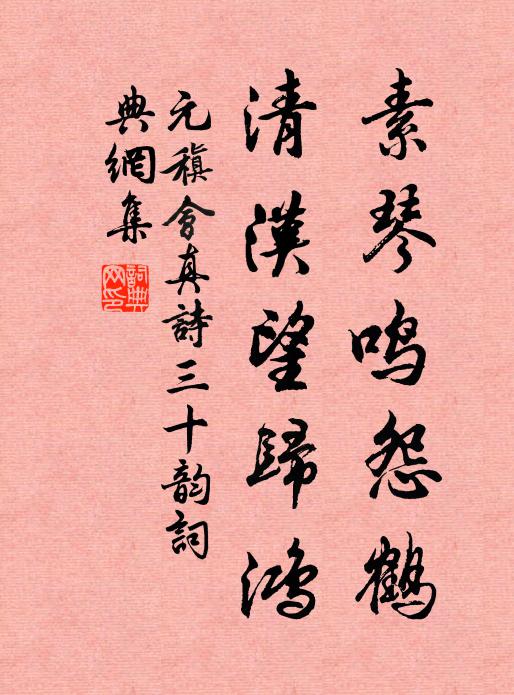 素琴鸣怨鶴
清漢望歸鴻
元稹會真詩三十韵詞
典網集
詞典網印